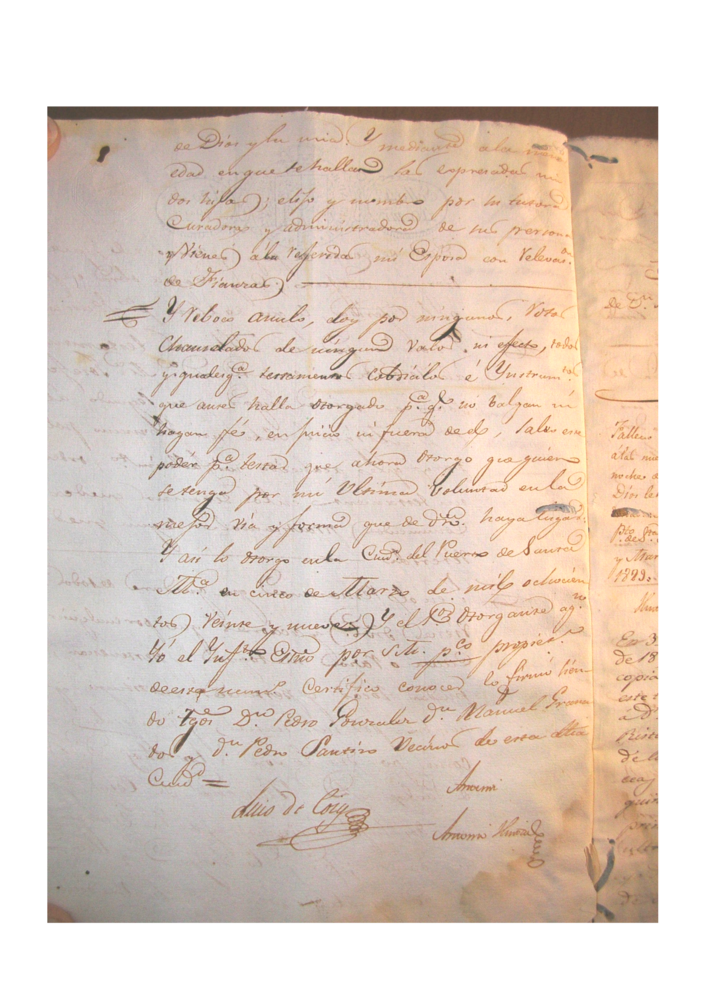 de Dios y la mia: Y mediante a la menor
edad en que se hallan las expresadas mi
dos hijas; elijo y nombro por su tutora
Curadora y administradora de sus persona
y Vienes a la Referida mi Esposa con Relevaon.
de Fianzas
Y Reboco anulo, doy por ningunos, Rotos
Chanselados de ningun Valor ni efecto, todos
y qualesqa. testamentos Cobdicilos é Ynstrumtos.
que antes halla otorgado pa. qe. no balgan ni
hagan fée, en juicio ni fuera de el, Salvo este
poder pa. testar que ahora otorgo que quiero
se tenga por mi Ultima Voluntad en la
mejor via y forma que de dro. haya lugar.
Y asi lo otorgo en la Ciud. del Puerto de Santa
Ma. en cinco de Marzo de mil ochocien
tos Veinte y nueve Y el Sor. Otorgante ag.n
Yó el Ynfto. Esno por S.M. pco propieto.
de este numo. Certifico conocer lo firmó sien
do tgos Dn. Pedro Gonzalez dn. Manuel Grana
dos y dn. Pedro Santiso Vecinos de esta dha
Ciudd =
Luis de
Antemi
Antonio
de Dn.
Dios
1829.
Er 3
de 18
copia
este
a D
de la